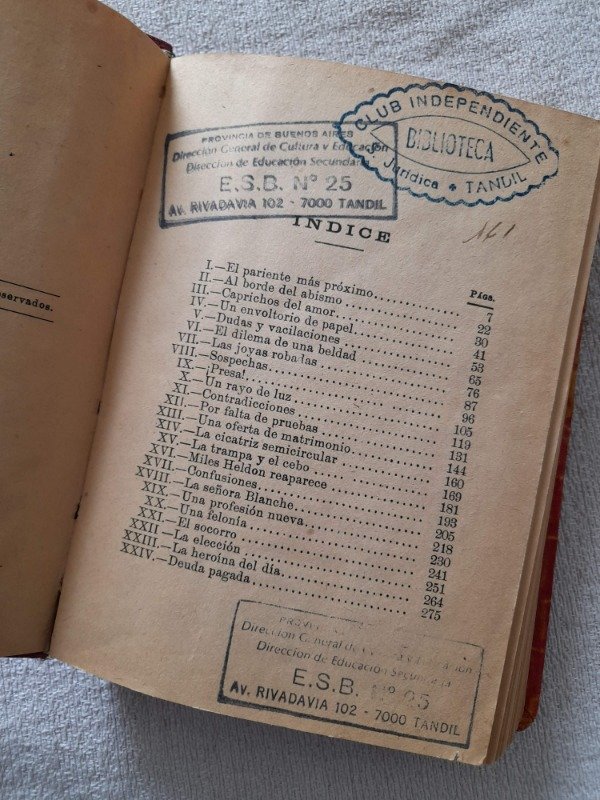 servados.
PROVINCIA DE BUENOS AIRES
Dirección General de Cultura y Educación
Dirección de Educación Secundaria
E.S.B. Nº 25
AV. RIVADAVIA 102 - 7000 TANDIL
CLUB INDEPENDIENTE
BIBLIOTECA
Jurídica * TANDIL
INDICE
Págs.
I.—El pariente más próximo 7
II.—Al borde del abismo 22
III.—Caprichos del amor 30
IV.—Un envoltorio de papel 41
V.—Dudas y vacilaciones 53
VI.—El dilema de una beldad 65
VII.—Las joyas robadas 76
VIII.—Sospechas 87
IX.—¡Presa! 96
X.—Un rayo de luz 105
XI.—Contradicciones 119
XII.—Por falta de pruebas 131
XIII.—Una oferta de matrimonio 144
XIV.—La cicatriz semicircular 160
XV.—La trampa y el cebo 169
XVI.—Miles Heldon reaparece 181
XVII.—Confusiones 193
XVIII.—La señora Blanche 205
XIX.—Una profesión nueva 218
XX.—Una felonía 230
XXI.—El socorro 241
XXII—La elección 251
XXIII.—La heroína del día 264
XXIV.—Deuda pagada 275
Dirección General de
Dirección de Educación Secundaria
E.S.B. Nº 25
AV. RIVADAVIA 102 - 7000 TANDIL